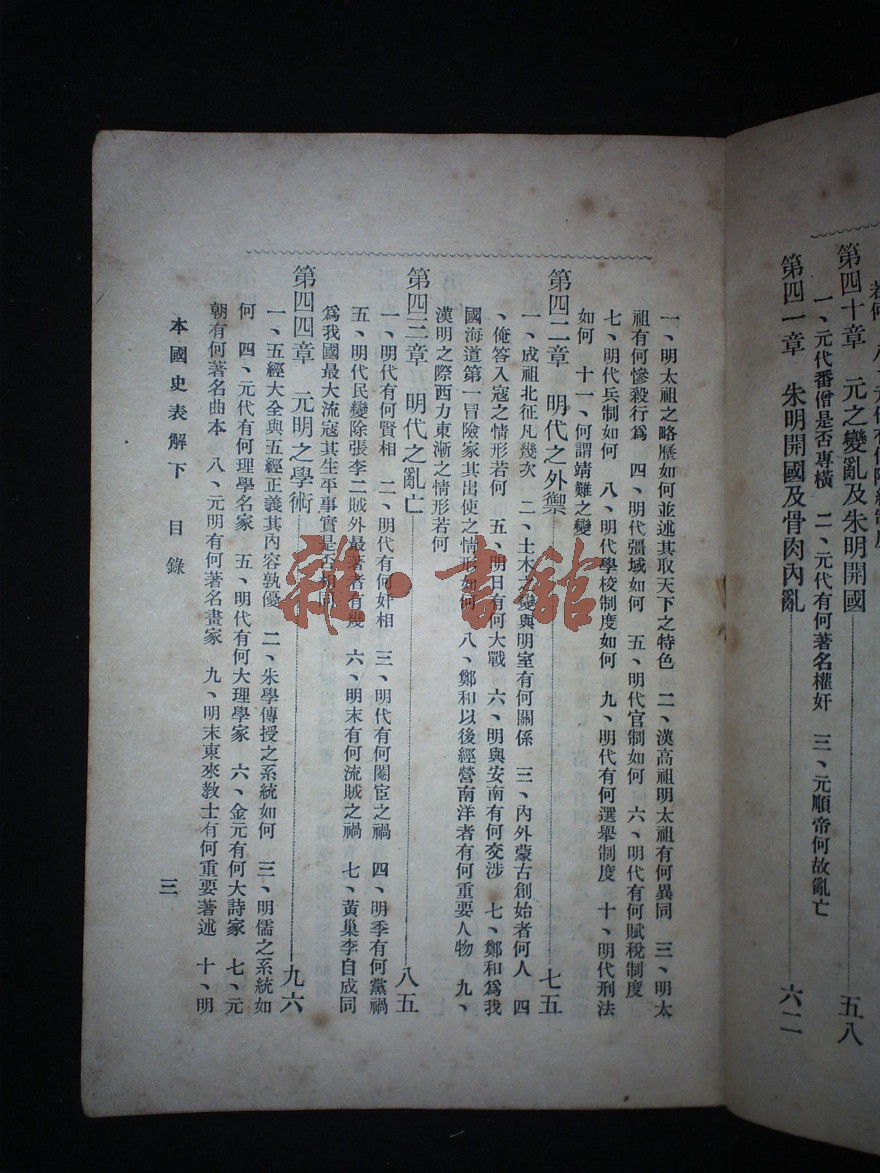 第四十章　元之變亂及朱明開國　五八
一、元代番僧是否專橫　二、元代有何著名權奸　三、元順帝何故亂亡
第四一章　朱明開國及骨肉內亂　六二
一、明太祖之略歷如何並述其取天下之特色　二、漢高祖明太祖有何異同　三、明太
祖有何慘殺行爲　四、明代彊域如何　五、明代官制如何　六、明代有何賦稅制度
七、明代兵制如何　八、明代學校制度如何　九、明代有何選舉制度　十、明代刑法
如何　十一、何謂靖難之變
第四二章　明代之外禦　七五
一、成祖北征凡幾次　二、土木之變與明室有何關係　三、內外蒙古創始者何人　四
、俺答入寇之情形若何　五、明日有何大戰　六、明與安南有何交涉　七、鄭和爲我
國海道第一冒險家其出使之情形如何　八、鄭和以後經營南洋者有何重要人物　九、
漢明之際西力東漸之情形若何
第四三章　明代之亂亡　八五
一、明代有何賢相　二、明代有何奸相　三、明代有何閹宦之禍　四、明季有何黨禍
五、明代民變除張李二賊外最著者有幾　六、明末有何流賊之禍　七、黃巢李自成同
爲我國最大流寇其生平事實是否相同
第四四章　元明之學術　九六
一、五經大全與五經正義其內容孰優　二、朱學傳授之系統如何　三、明儒之系統如
何　四、元代有何理學名家　五、明代有何大理學家　六、金元有何大詩家　七、元
朝有何著名曲本　八、元明有何著名畫家　九、明末東來敎士有何重要著述　十、明
本國史表解下　目錄　三
雜·書館